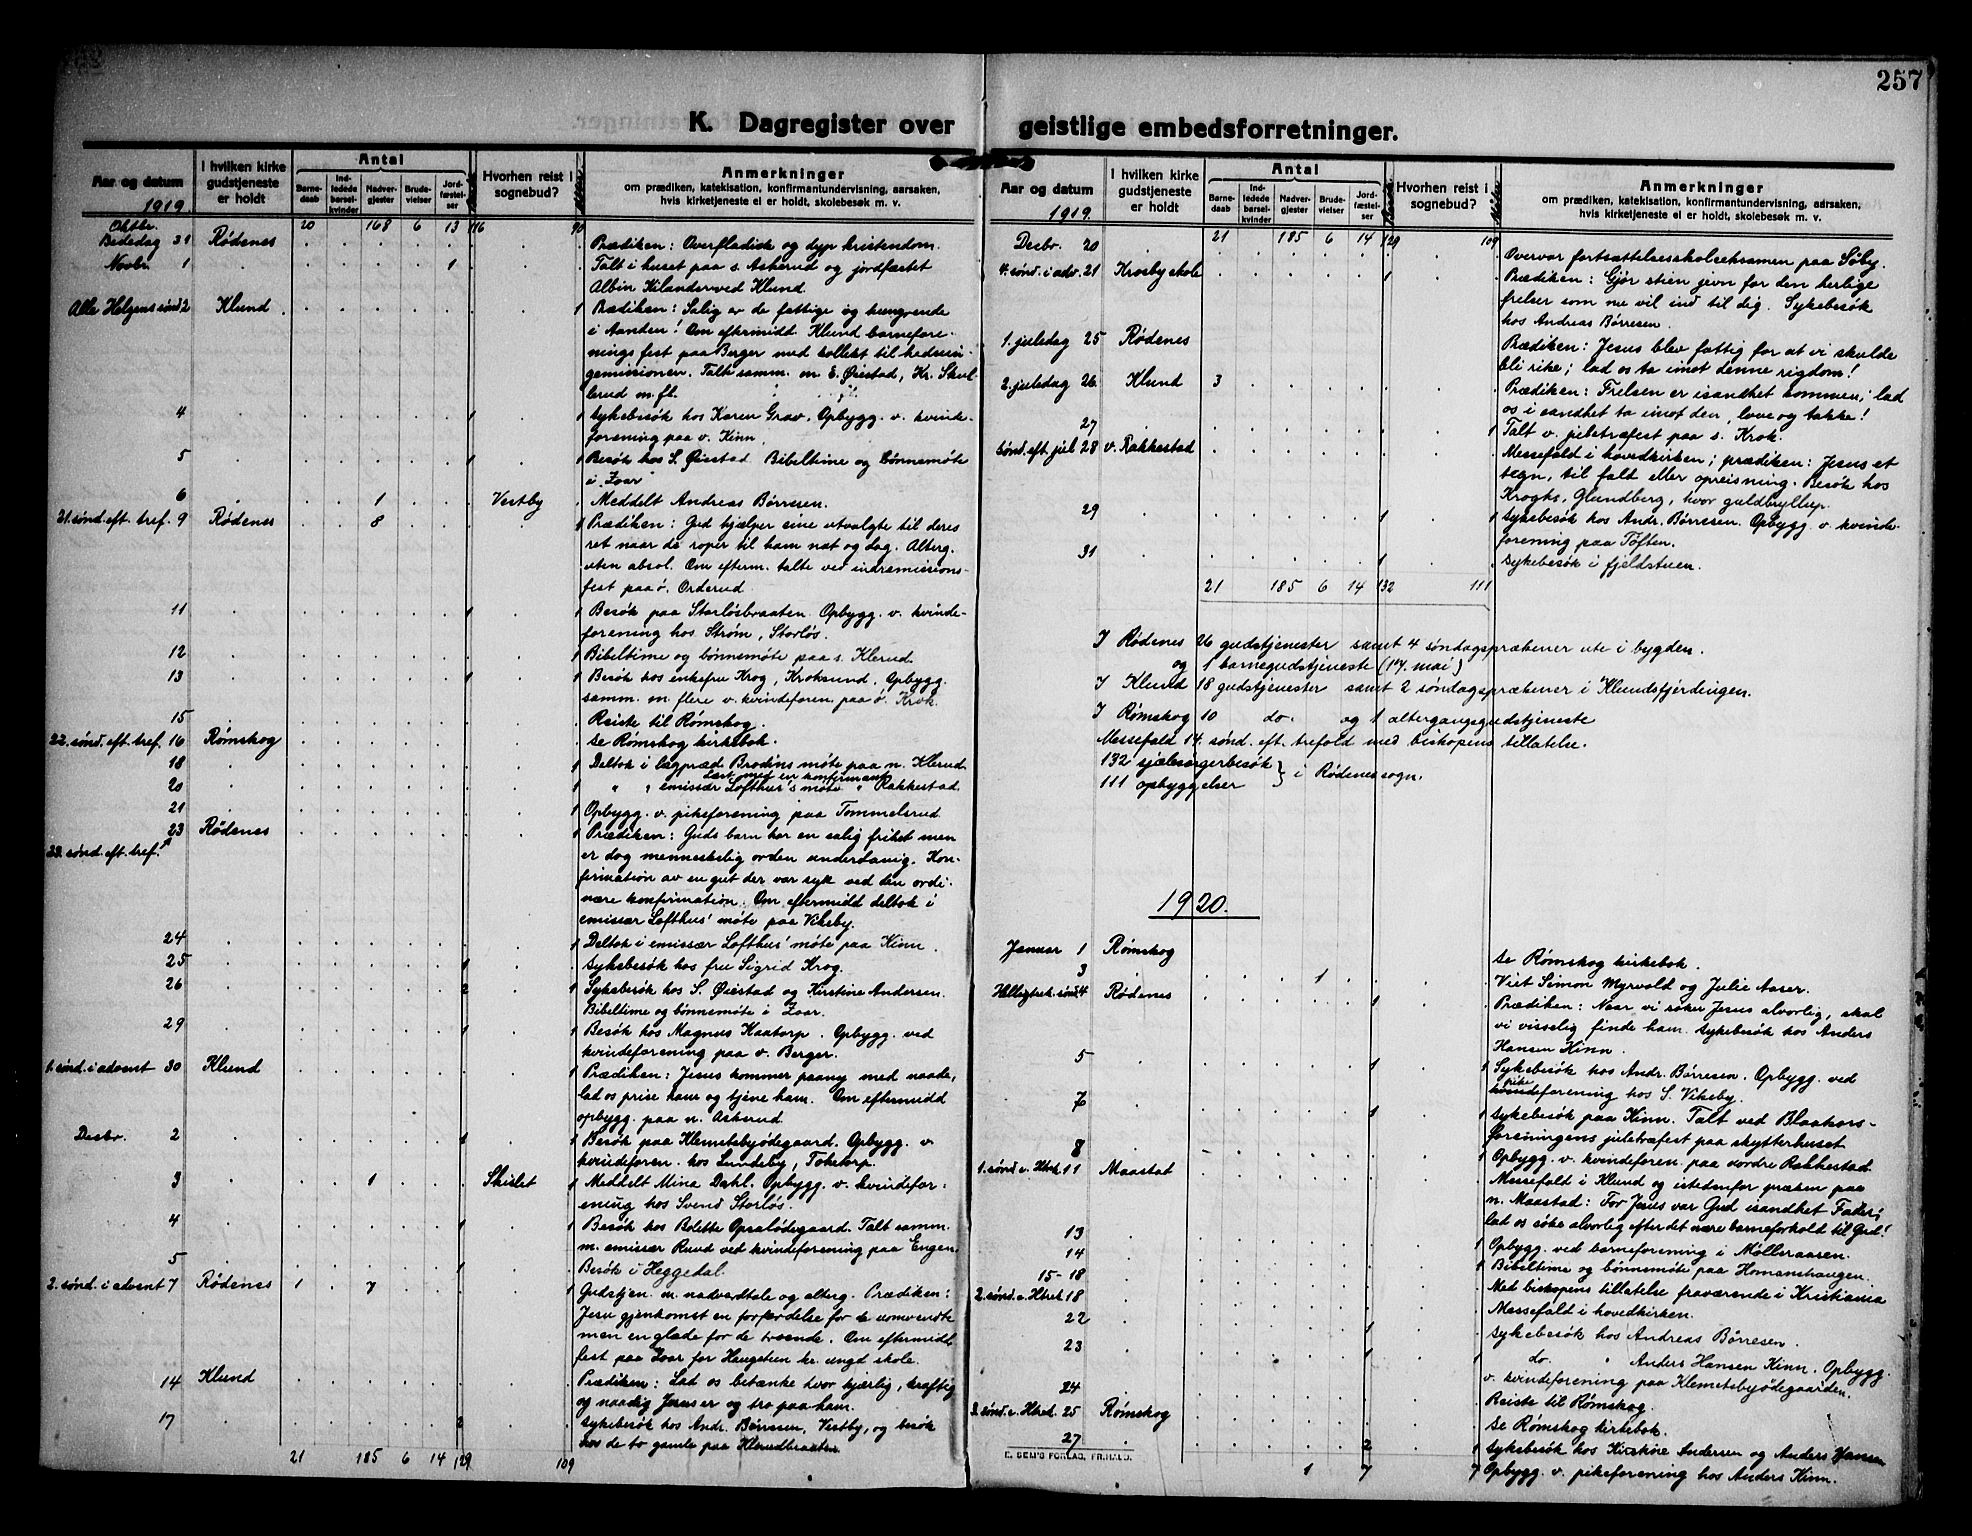 257
K. Dagregister over geistlige embedsforretninger.
Aar og datum
1919.
I hvilken kirke gudstjeneste er holdt
Antal
Barnedaab
Indledede barselkvinder
Nadvergjester
Brudevielser
Jordfæstelser
Hvorhen reist i sognebud?
Anmerkninger
om prædiken, katekisation, konfirmantundervisning, aarsaken, hvis kirketjeneste ei er holdt, skolebesøk m. v.
Oktbr. 20 168 6 13 116 90
Bededag 31 Rødenes Prædiken: Overfladisk og dyp kristendom.
Novbr. 1 1 Talt i huset paa s. Askerud og jordfæstet
Albin Kilander ved Klund.
Alle Helgens sønd 2 Klund 1 Prædiken: Salig er de fattige og hungrende
i Aanden! Om eftermidd. Klund barnefore-
nings fest paa Berger med kollekt til hednin-
gemissionen. Talt samm. m. E. Øiestad, Kr. Skul-
lerud m. fl.
4 1 1 Sykebesøk hos Karen Grav. Opbygg. v. kvinde-
forening paa v. Kinn.
5 1 1 Besøk hos S. Øiestad. Bibeltime og bønnemøte
i "Zoar"
6 1 Vestby Meddelt Andreas Børresen.
21. sønd. eft. tref. 9 Rødenes 8 1 Prædiken: Gud hjælper sine utvalgte til deres
ret naar de roper til ham nat og dag. Alterg.
uten absol. Om efterm. talte ved indremissions-
fest paa ø. Orderud.
11 1 1 Besøk paa Storløsbraaten. Opbygg. v. kvinde-
forening hos Strøm, Storløs.
12 1 Bibeltime og bønnemøte paa s. Klerud.
13 1 1 Besøk hos enkefru Krog, Kroksund, Opbygg.
samm. m. flere v. kvindeforen. paa ø. Krok.
15 Reiste til Rømskog.
22. sønd. eft. tref. 16 Rømskog Se Rømskog kirkebok.
18 1 Deltok i lægpræd. Brodins møte paa n. Klerud.
Læst med en konfirmant
20 1 " " emissær Lofthus's møte " Rakkestad.
21 1 Opbygg. v. pikeforening paa Tommelsrud.
23 Rødenes 1 Prædiken: Guds barn har en salig frihet men
23. sønd. eft. tref. er dog menneskelig orden underdanig. Kon-
firmation av en gut der var syk ved den ordi-
nære konfirmation. Om eftermidd deltok i
emissær Lofthus' møte paa Vikeby.
24 1 Deltok i emissær Lofthus' møte paa Kinn.
25 1 Sykebesøk hos fru Sigrid Krog.
26 2 1 Sykebesøk hos S. Øiestad og Kirstine Andersen.
Bibeltime og bønnemøte i Zoar.
29 1 1 Besøk hos Magnus Kaatorp. Opbygg. ved
kvindeforening paa v. Berger.
1. sønd. i advent 30 Klund 1 Prædiken: Jesus kommer paany med naade,
lad os prise ham og tjene ham. Om eftermidd
opbygg. paa n. Askerud.
Desbr. 2 1 1 Besøk paa Klemetsbyødegaard. Opbygg. v.
kvindeforen. hos Lundeby, Toketorp.
3 1 Skislet 1 Meddelt Mina Dahl. Opbygg. v. kvindefor-
ening hos Svend Storløs.
4 1 1 Besøk hos Bolette Opsalødegaard. Talt samm.
m. emissær Ruud ved kvindeforening paa Engen.
5 1 Besøk i Heggedal.
2. sønd. i advent 7 Rødenes 1 7 1 Gudstjen. m. nadverdtale og alterg. Prædiken:
Jesu gjenkomst en forfærdelse for de uomvendte
men en glæde for de troende. Om eftermidd.
fest paa Zoar for Haugetun kr. ungd. skole.
14 Klund Prædiken: Lad os betænke hvor kjærlig, kraftig
og naadig Jesus er og tro paa ham.
17 2 Sykebesøk hos Andr. Børresen, Vestby, og besøk
hos de to gamle paa Klerudbraaten
21 185 6 14 129 109
Aar og datum
1919.
I hvilken kirke gudstjeneste er holdt
Antal
Barnedaab
Indledede barselkvinder
Nadvergjester
Brudevielser
Jordfæstelser
Hvorhen reist i sognebud?
Anmerkninger
om prædiken, katekisation, konfirmantundervisning, aarsaken, hvis kirketjeneste ei er holdt, skolebesøk m. v.
21 185 6 14 129 109
Desbr. 20 Overvar fortsættelsesskoleeksamen paa Søby.
4. sønd. i adv. 21 Krosby skole 1 Prædiken: Gjør stien jevn for den herlige
frelser som nu vil ind til dig. Sykebesøk
hos Andreas Børresen.
1. juledag 25 Rødenes Prædiken: Jesus blev fattig for at vi skulde
bli rike; lad os ta imot denne rigdom!
2. juledag 26 Klund 3 Prædiken: Frelsen er isandhet kommen; lad
os i sandhet ta imot den, love og takke!
27 1 Talt v. juletræfest paa s. Krok.
sønd. eft. jul 28 v. Rakkestad Messefald i hovedkirken; prædiken: Jesus et
tegn, til fald eller opreisning. Besøk hos
Kroghs, Glundberg, hvor guldbryllup.
29 1 1 Sykebesøk hos Andr. Børresen. Opbygg. v. kvinde-
forening paa Toften.
31 1 Sykebesøk i fjeldstuen.
21 185 6 14 132 111
I Rødenes 26 gudstjenester samt 4 søndagsprækener ute i bygden.
og 1 barnegudstjeneste (17. mai)
I Klund 18 gudstjenester samt 2 søndagsprækener i Klundsfjerdingen.
I Rømskog 10 do. og 1 altergangsgudstjeneste
Messefald 14. sønd. eft. trefold. med biskopens tillatelse.
132 sjælesørgerbesøk
111 opbyggelser } i Rødenes sogn.
1920.
Januar 1 Rømskog Se Rømskog kirkebok.
3 1 Viet Simon Myrvold og Julie Aaser.
Helligtrek. sønd. 4 Rødenes 1 Prædiken: Naar vi søker Jesus alvorlig, skal
vi visselig finde ham. Sykebesøk hos Anders
Hansen Kinn.
5 1 1 Sykebesøk hos Andr. Børresen. Opbygg. ved
pike
kvindeforening hos S. Vikeby.
7 1 1 Sykebesøk paa Kinn. Talt ved Blaakors-
foreningens juletræfest paa skytterhuset
8 1 Opbygg. v. kvindeforen. paa nordre Rakkestad.
1. sønd. e. Htrek. 11 Maastad Messefald i Klund og istedenfor præken paa
n. Maastad: For Jesus var Gud isandhet Fader;
lad os søke alvorlig efter det nære barneforhold til Gud!
13 1 Opbygg. ved barneforening i Mølleraasen.
14 1 Bibeltime og bønnemøte paa Homanshaugen.
15-18 Med biskopens tillatelse fraværende i Kristiania
2. sønd. e. Htrek. 18 Messefald i hovedkirken.
22 1 Sykebesøk hos Andreas Børresen.
23 1 1 do. " Anders Hansen Kinn. Opbygg.
v. kvindeforening paa Klemetsbyødegaarden.
24 Reiste til Rømskog.
3. sønd. e. Htrek. 25 Rømskog Se Rømskog kirkebok.
27 2 1 Sykebesøk hos Kirstine Andersen og Anders Hansen
1 7 7 Opbygg. v. pikeforening hos Anders Kinn.
E. SEM'S FORLAG, FR.HALD.